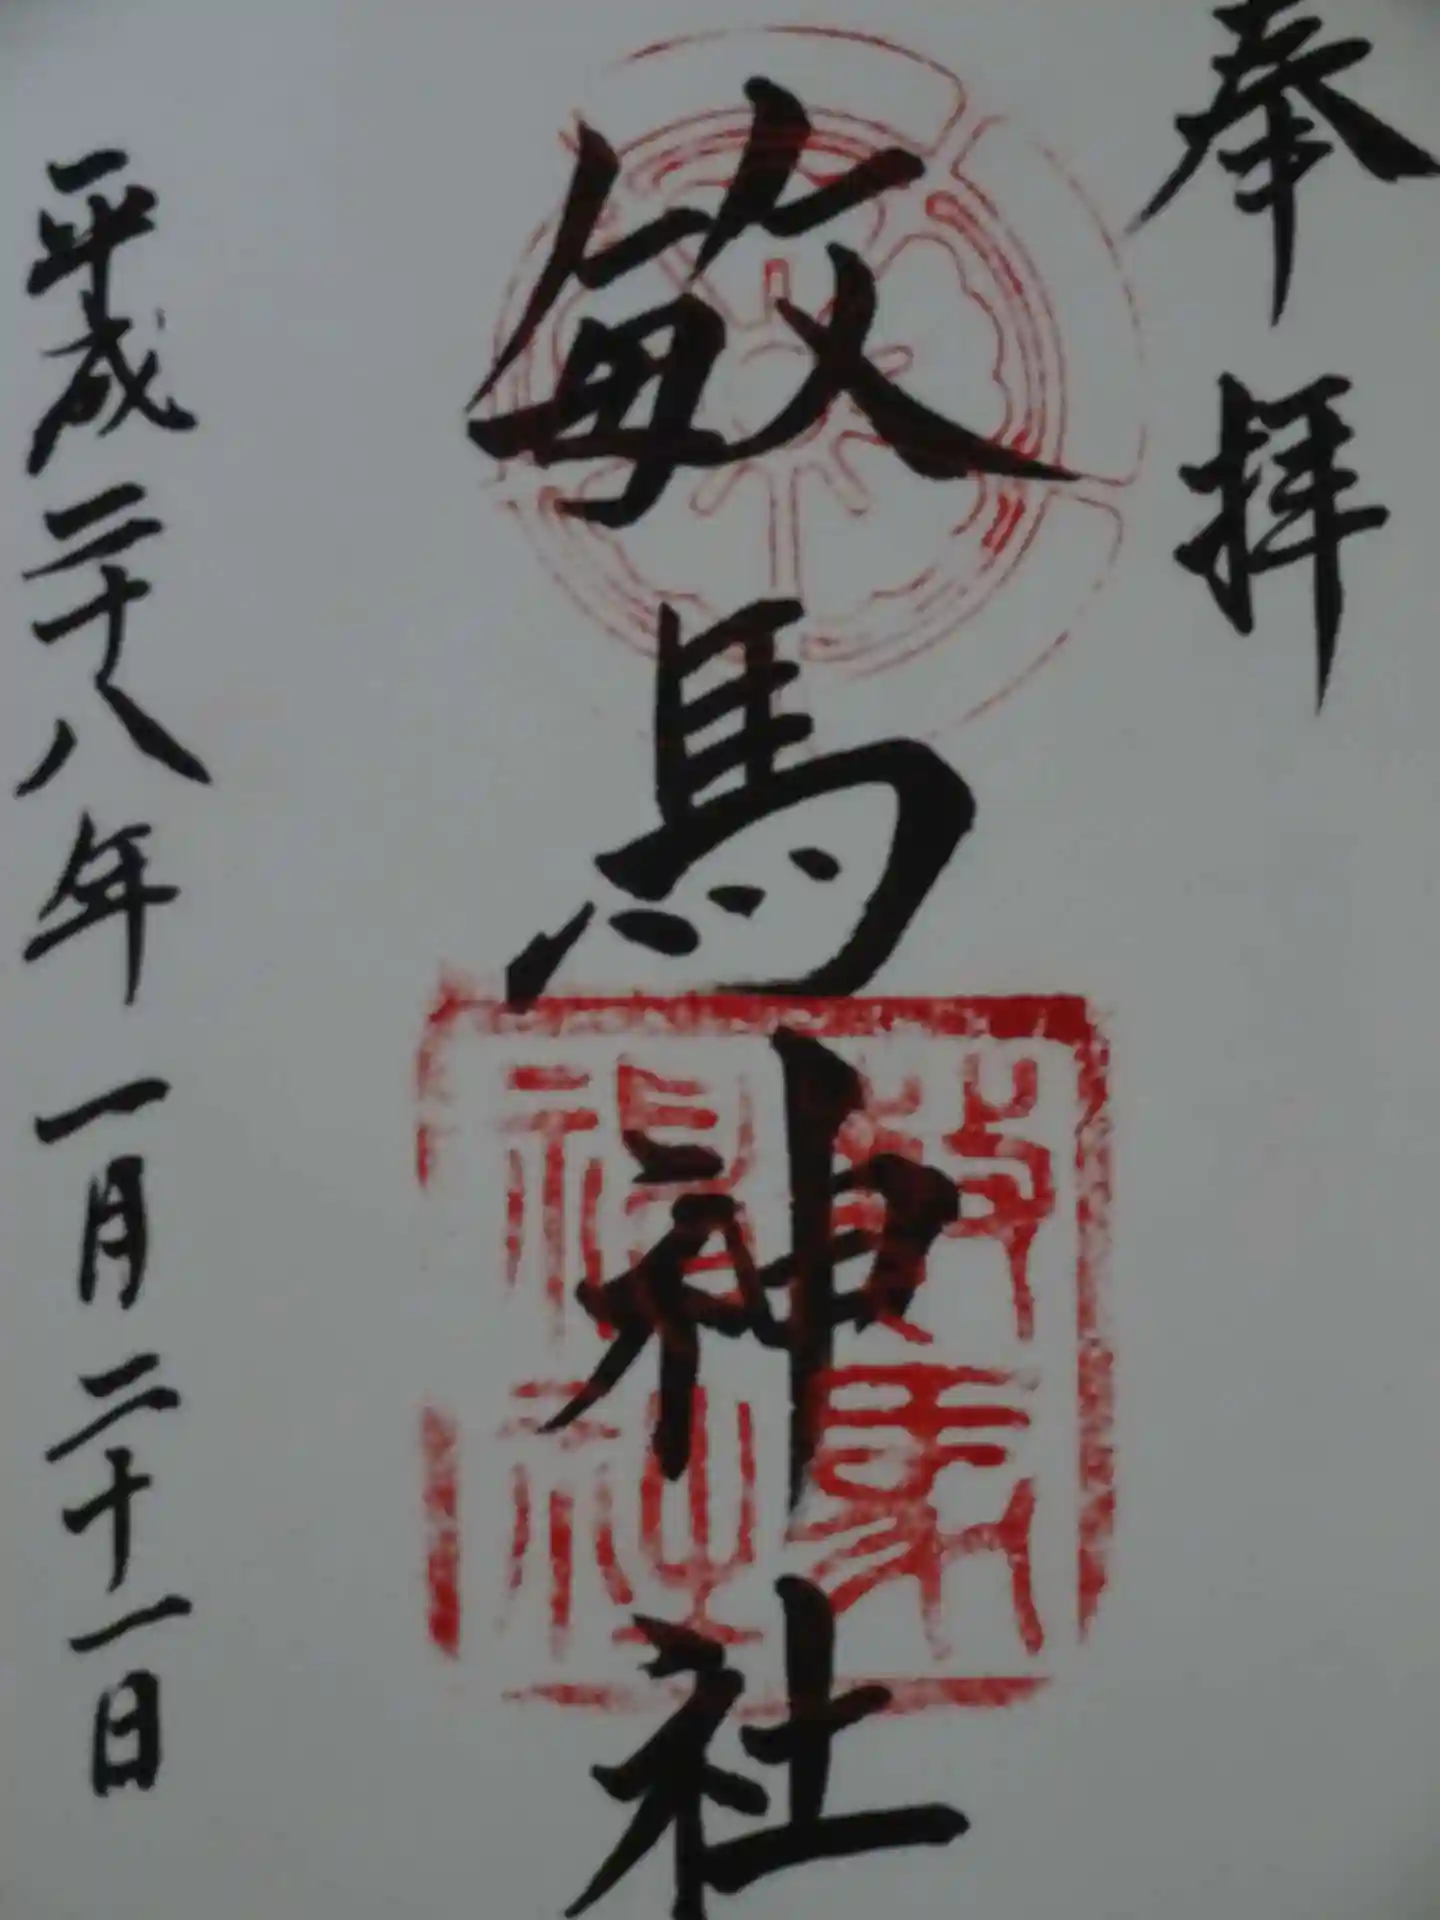 奉拝
敏馬神社
敏馬神社
平成二十八年一月二十一日